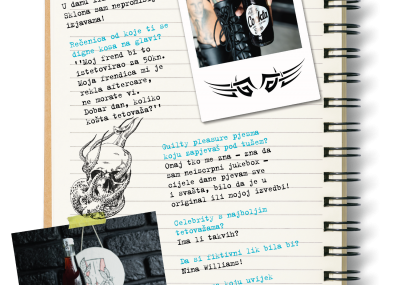 U danu
Sklona sam nepromišlj
izjavama!
Rečenica od koje ti se
digne kosa na glavi?
''Moj frend bi to
istetovirao za 50kn.
Moja frendica mi je
rekla aftercare,
ne morate vi.
Dobar dan, koliko
košta tetovaža?''
Guilty pleasure pjesma
koju zapjevaš pod tušem?
Onaj tko me zna - zna da
sam neiscrpni jukebox -
cijele dane pjevam sve
i svašta, bilo da je u
original ili mojoj izvedbi!
Celebrity s najboljim
tetovažama?
Ima li takvih?
Da si fiktivni lik bila bi?
Nina Williams!
koju uvijek